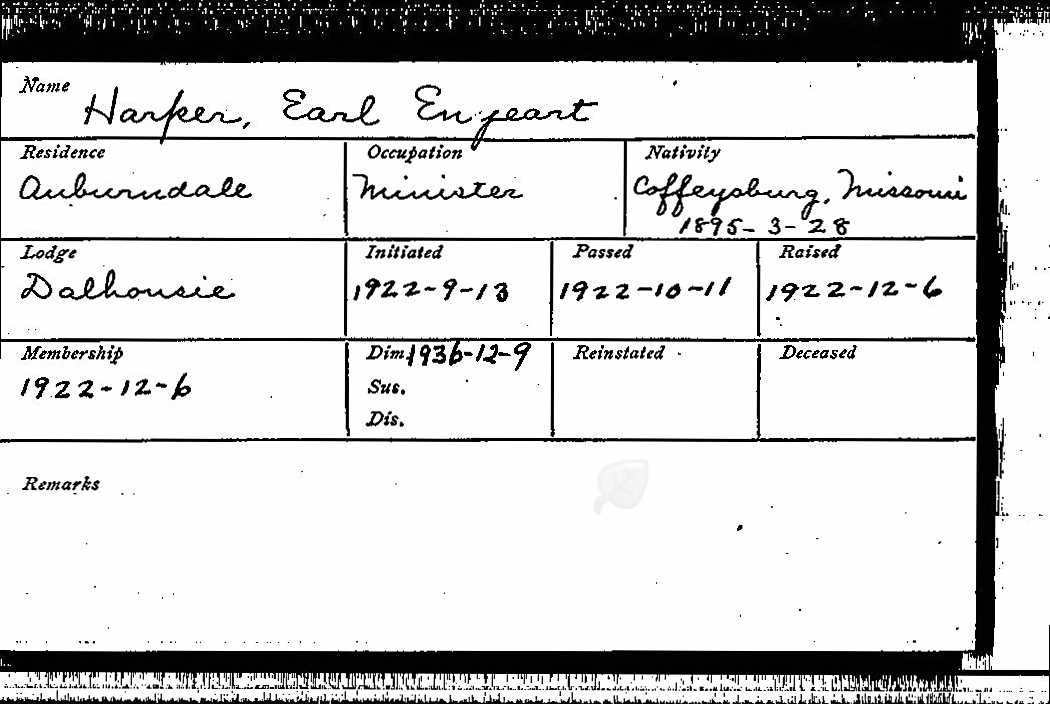 Name
Harper, Earl Enyeart
Residence
Auburndale
Occupation
Minister
Nativity
Coffeysburg, Missouri
1895-3-28
Lodge
Dalhousie
Initiated
1922-9-13
Passed
1922-10-11
Raised
1922-12-6
Membership
1922-12-6
Dim. 1936-12-9
Sus.
Dis.
Reinstated
Deceased
Remarks